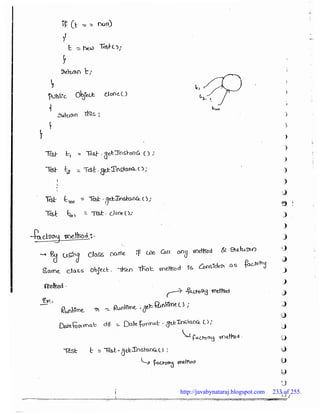 if (t == null)
{
t = new Test();
}
return t;
}
public Object clone()
{
return this;
}
}
Test t1 = Test.getInstance();
Test t2 = Test.getInstance();
Test t100 = Test.getInstance();
Test t101 = Test.clone();
factory method:-
→ By using class name if we call any method & return
same class object. then that method is consider as factory
method.
→ factory method
Ex:- Runtime r = Runtime.getRuntime();
DateFormat df = DateFormat.getInstance();
factory method.
Test t = Test.getInstance();
factory method
http://javabynataraj.blogspot.com 233 of 255.